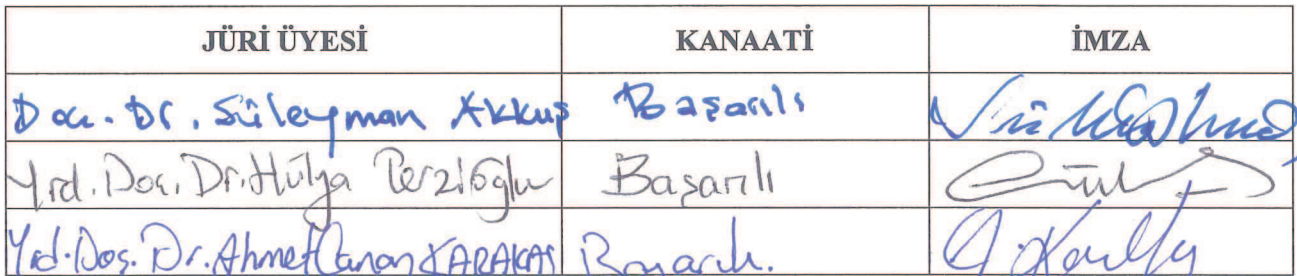 JÜRİ ÜYESİ KANAATİ İMZA
Doç. Dr. Süleyman Akkuş Başarılı
Yrd. Doç. Dr. Hülya Terzioğlu Başarılı
Yrd. Doç. Dr. Ahmet Canan KARAKAŞ Başarılı.